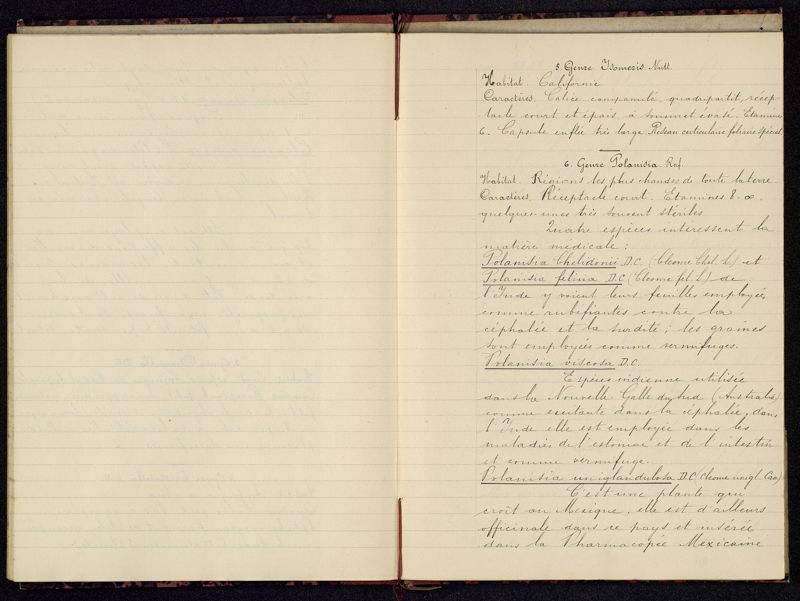 5. Genre Isomeris. Nutt.
Habitat. Californie
Caractères. Calice campanulé, quadripartit, récep-
tacle court et épais, à sommet évasé. Etamines
6. Capsule enflée très large. Réseau cuticulaire foliaire spécial
6. Genre Polanisia. Raf.
Habitat. Régions les plus chaudes de toute la terre.
Caractères. Réceptacle court. Etamines 8-∞,
quelques-unes très souvent stériles
Quatre espèces intéressent la
matière médicale:
Polanisia Chelidonii D.C. (Cleome Chel. L) et
Polanisia felina D.C (Cleome fel. L) de
l'Inde y voient leurs feuilles employées
comme rubéfiantes contre la
céphalée et la surdité; les graines
sont employées comme vermifuges.
Polanisia viscosa D.C.
Espèce indienne utilisée
dans la Nouvelle Galle du Sud (Australie)
comme excitante dans la céphalée, dans
l'Inde elle est employée dans les
maladies de l'estomac et de l'intestin
et comme vermifuge.
Polanisia uniglandulosa D.C (Cleome unigl. Cav)
C'est une plante qui
croit au Mexique, elle est d'ailleurs
officinale dans ce pays et insérée
dans la Pharmacopée Mexicaine